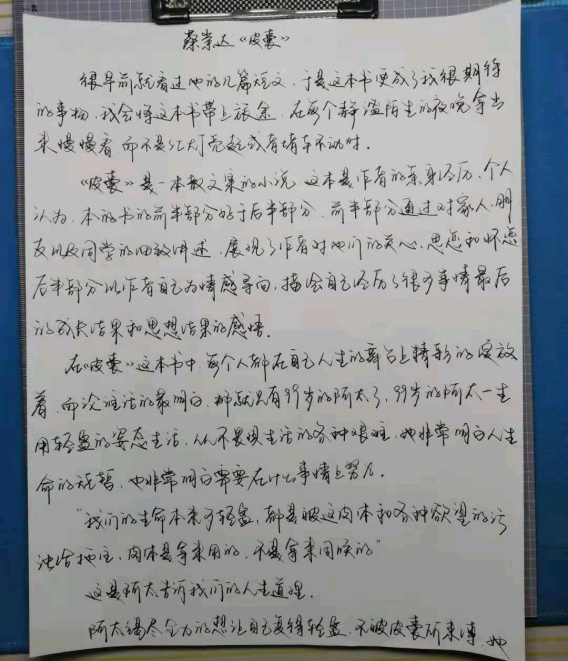 蔡崇达《皮囊》
很早前就看过他的几篇短文，于是这本书便成了我很期待
的事物，我会将这本书带上旅途，在每个静谧陌生的夜晚拿出
来慢慢看而不是红灯亮起或有堵车不动时。
《皮囊》是一本散文集的小说，这本是作者的亲身经历，个人
认为，本的书的前半部分好于后半部分，前半部分通过对家人、朋
友以及同学的细致讲述，展现了作者对他们的关心，思恋和怀恋
后半部分以作者自己为情感导向，描绘自己经历了很多事情最后
的成长结果和思想结果的感悟。
在《皮囊》这本书中，每个人都在自己人生的舞台上精彩的绽放
着，而论谁活的最明白，那就只有99岁的阿太了，99岁的阿太一生
用轻盈的姿态生活，从不畏惧生活的各种艰难，她非常明白人生
命的短暂，也非常明白需要在什么事情上努力。
"我们的生命本来多轻盈，都是被这肉体和各种欲望的污
浊给拖住，肉体是拿来用的，不是拿来伺候的"
这是阿太告诉我们的人生道理。
阿太竭尽全力的想让自己变得轻盈，不被皮囊所束缚，她